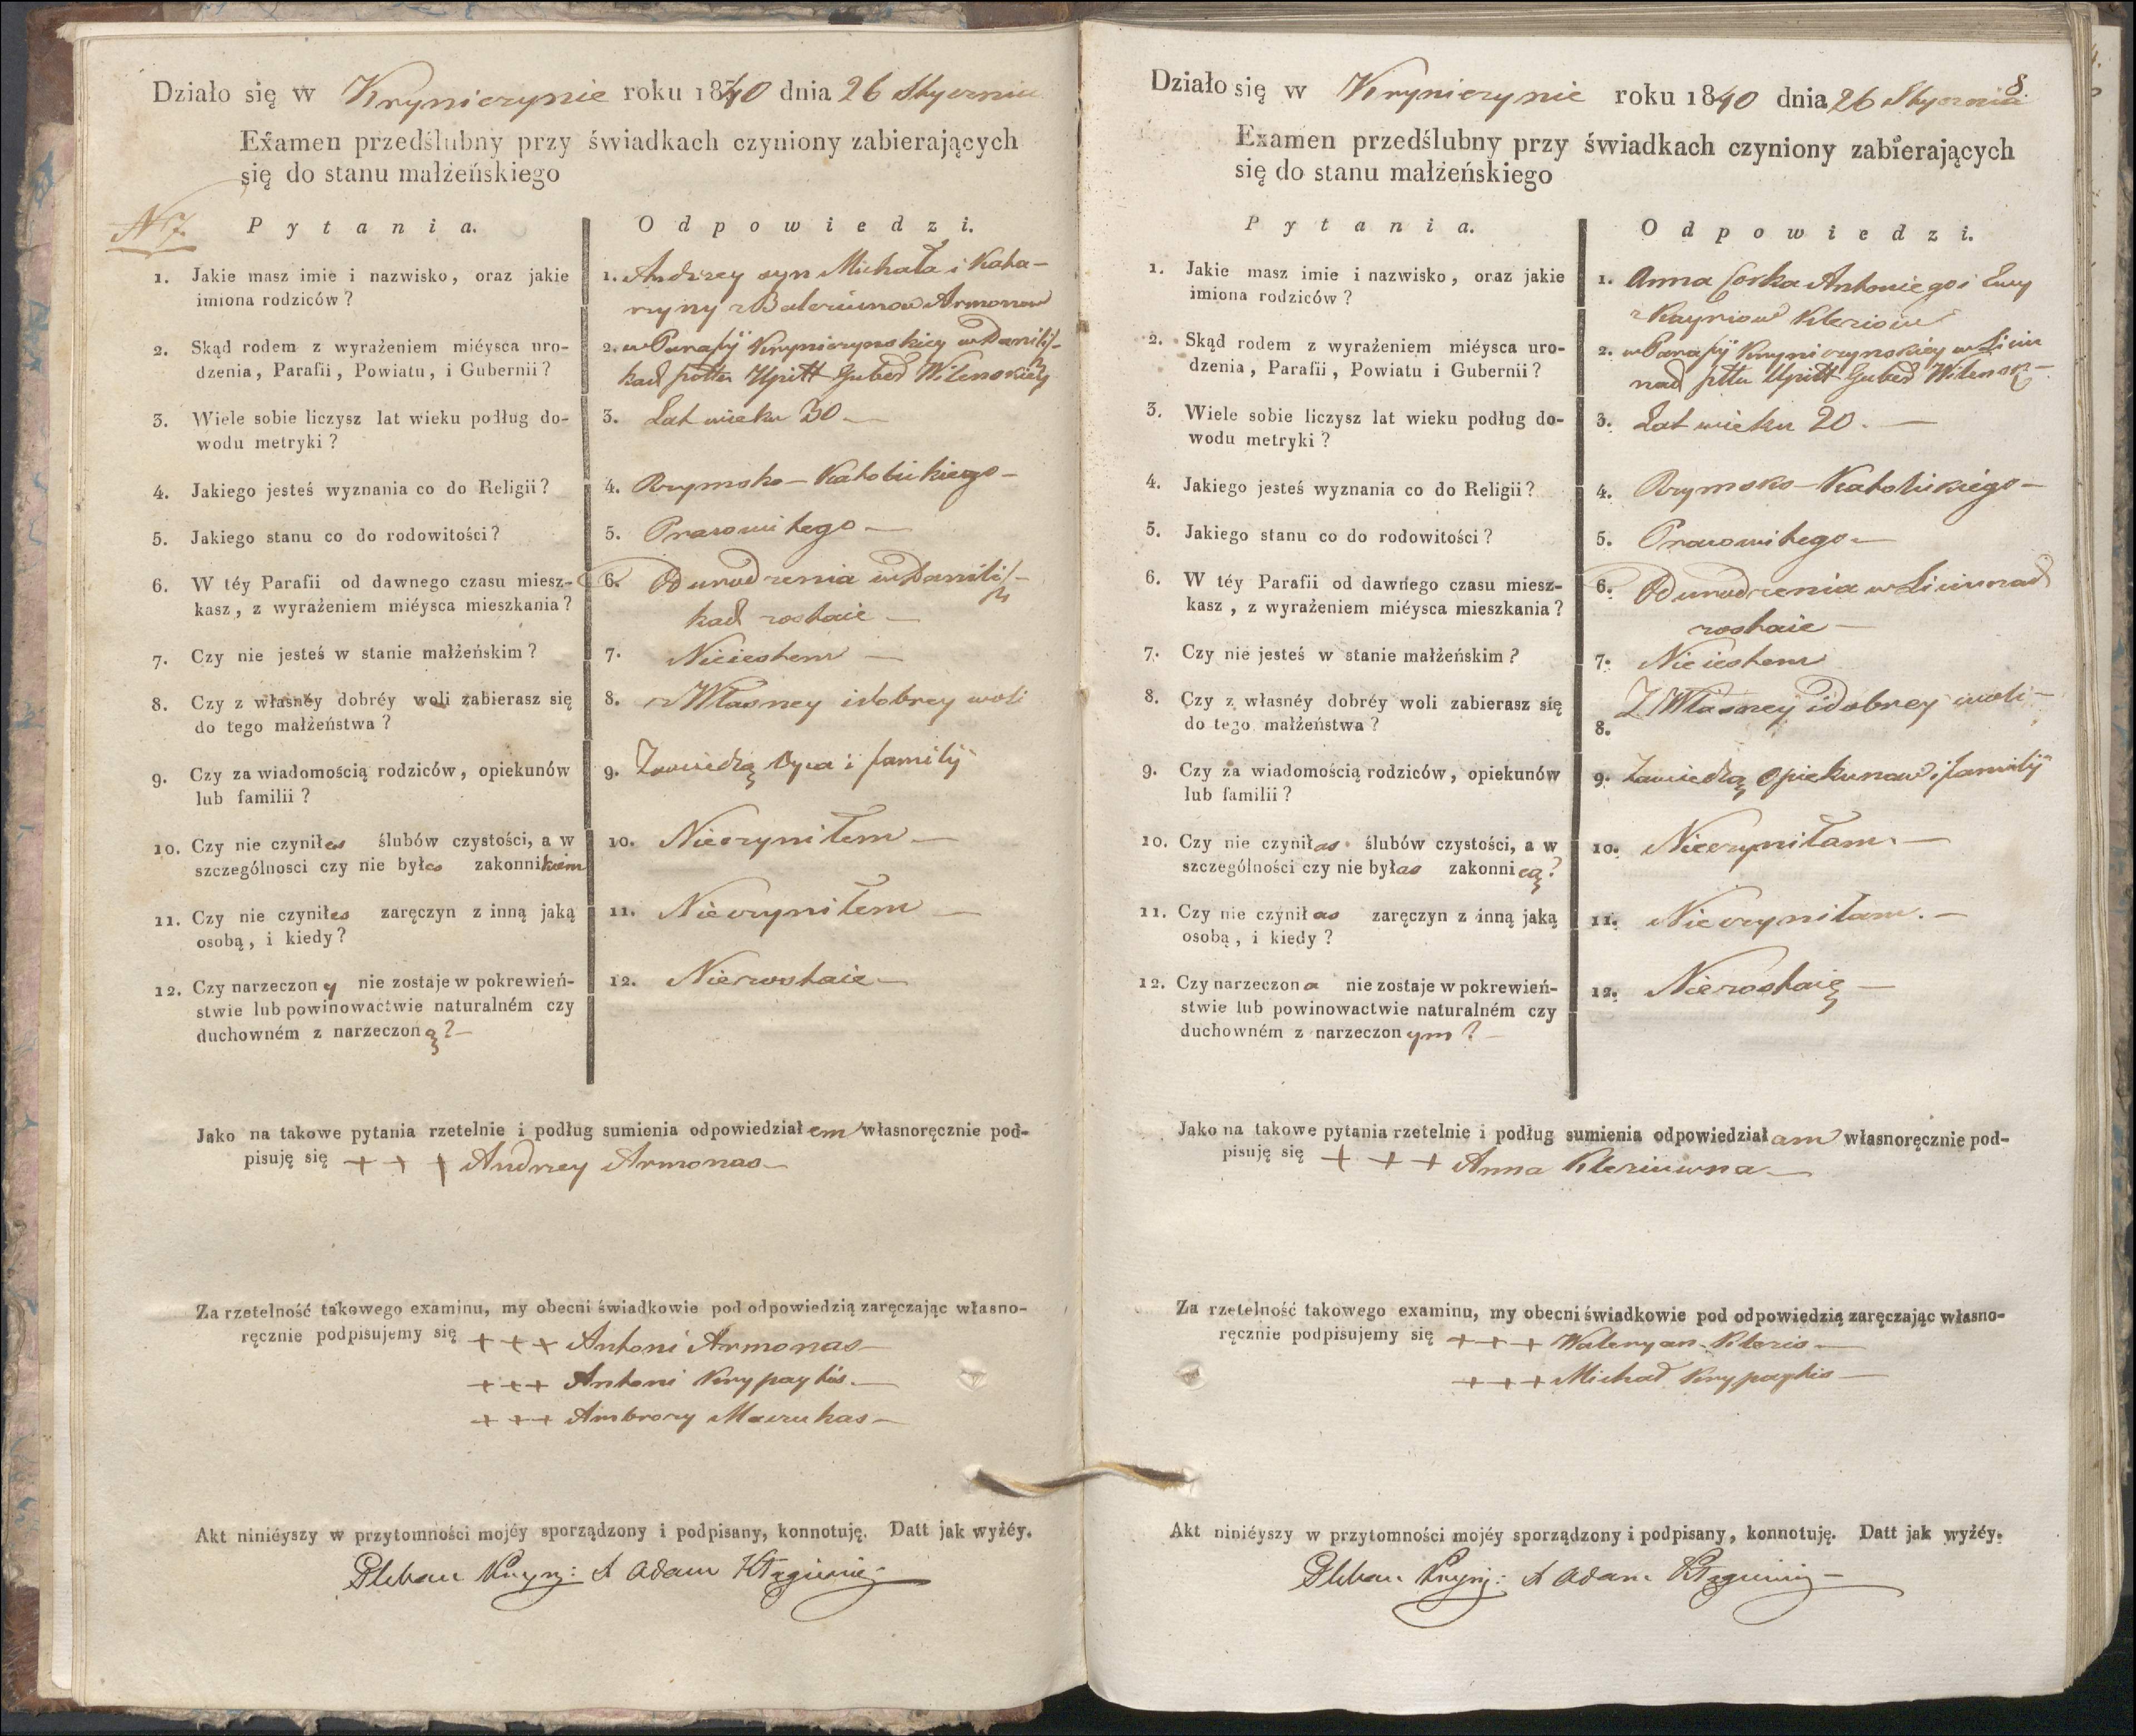 Działo się w Kryniczynie roku 1840 dnia 26 Stycznia
Examen przedślubny przy świadkach czyniony zabierających
się do stanu małżeńskiego
N 7
Pytania.
Odpowiedzi.
1. Jakie masz imie i nazwisko, oraz jakie
imiona rodziców?
1. Andrzey syn Michała i Kata-
rzyny z Armonow
2. Skąd rodem z wyrażeniem miéysca uro-
dzenia, Parafii, Powiatu, i Gubernii?
2. w Parafÿ Kryniczynskiey w Danilisz-
kach Upitt Guber Wilenskiey
3. Wiele sobie liczysz lat wieku podług do-
wodu metryki?
3. Lat wieku 30 —
4. Jakiego jesteś wyznania co do Religii?
4. Rzymsko-Katolickiego —
5. Jakiego stanu co do rodowitości?
5. Pracowitego —
6. W téy Parafii od dawnego czasu miesz-
kasz, z wyrażeniem miéysca mieszkania?
6. Od urodzenia w Danilisz-
kach zostaie —
7. Czy nie jesteś w stanie małżeńskim?
7. Nieiestem —
8. Czy z własnéy dobréy woli zabierasz się
do tego małżeństwa?
8. z Własney i dobrey woli
9. Czy za wiadomością rodziców, opiekunów
lub familii?
9. Zawiedzą Oyca i familÿ
10. Czy nie czyniłes ślubów czystości, a w
szczególnosci czy nie byłes zakonnikiem
10. Nieczyniłem —
11. Czy nie czyniłes zaręczyn z inną jaką
osobą, i kiedy?
11. Nieczyniłem —
12. Czy narzeczony nie zostaje w pokrewień-
stwie lub powinowactwie naturalném czy
duchowném z narzeczoną? —
12. Niezostaie —
Jako na takowe pytania rzetelnie i podług sumienia odpowiedziałem własnoręcznie pod-
pisuję się + + + Andrzey Armonas —
Za rzetelność takowego examinu, my obecni świadkowie pod odpowiedzią zaręczając własno-
ręcznie podpisujemy się + + + Antoni Armonas —
+ + + Antoni Krypaytis. —
+ + + Ambrozy —
Akt niniéyszy w przytomności mojéy sporządzony i podpisany, konnotuję. Datt jak wyżéy.
Pleban Kryn: X Adam
8.
Działo się w Kryniczynie roku 1840 dnia 26 Stycznia
Examen przedślubny przy świadkach czyniony zabierających
się do stanu małżeńskiego
Pytania.
Odpowiedzi.
1. Jakie masz imie i nazwisko, oraz jakie
imiona rodziców?
1. Anna Corka Antoniego i Ewy
z Kleziow
2. Skąd rodem z wyrażeniem miéysca uro-
dzenia, Parafii, Powiatu i Gubernii?
2. w Parafÿ Kryniczynskiey w
Upitt Guber Wilensk
3. Wiele sobie liczysz lat wieku podług do-
wodu metryki?
3. Lat wieku 20. —
4. Jakiego jesteś wyznania co do Religii?
4. Rzymsko-Katolickiego —
5. Jakiego stanu co do rodowitości?
5. Pracowitego —
6. W téy Parafii od dawnego czasu miesz-
kasz, z wyrażeniem miéysca mieszkania?
6. Od urodzenia w
zostaie —
7. Czy nie jesteś w stanie małżeńskim?
7. Nieiestem
8. Czy z własnéy dobréy woli zabierasz się
do tego małżeństwa?
8. Z Własney i dobrey woli —
9. Czy za wiadomością rodziców, opiekunów
lub familii?
9. Zawiedzą Opiekunow i familÿ
10. Czy nie czyniłas ślubów czystości, a w
szczególności czy nie byłas zakonnicą?
10. Nieczyniłam. —
11. Czy nie czyniłas zaręczyn z inną jaką
osobą, i kiedy?
11. Nieczyniłam. —
12. Czy narzeczona nie zostaje w pokrewień-
stwie lub powinowactwie naturalném czy
duchowném z narzeczonym? —
12. Niezostaię —
Jako na takowe pytania rzetelnie i podług sumienia odpowiedziałam własnoręcznie pod-
pisuję się + + + Anna Kleziuwna —
Za rzetelność takowego examinu, my obecni świadkowie pod odpowiedzią zaręczając własno-
ręcznie podpisujemy się + + + Waleryan Klezis —
+ + + Michał Krypaytis —
Akt niniéyszy w przytomności mojéy sporządzony i podpisany, konnotuję. Datt jak wyżéy.
Pleban Kryn: X Adam